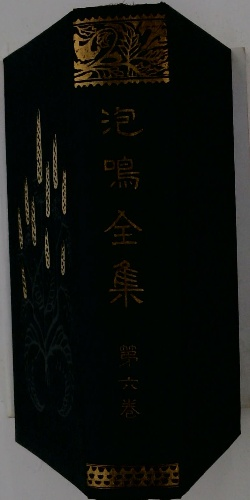 泡鳴全集
第六卷